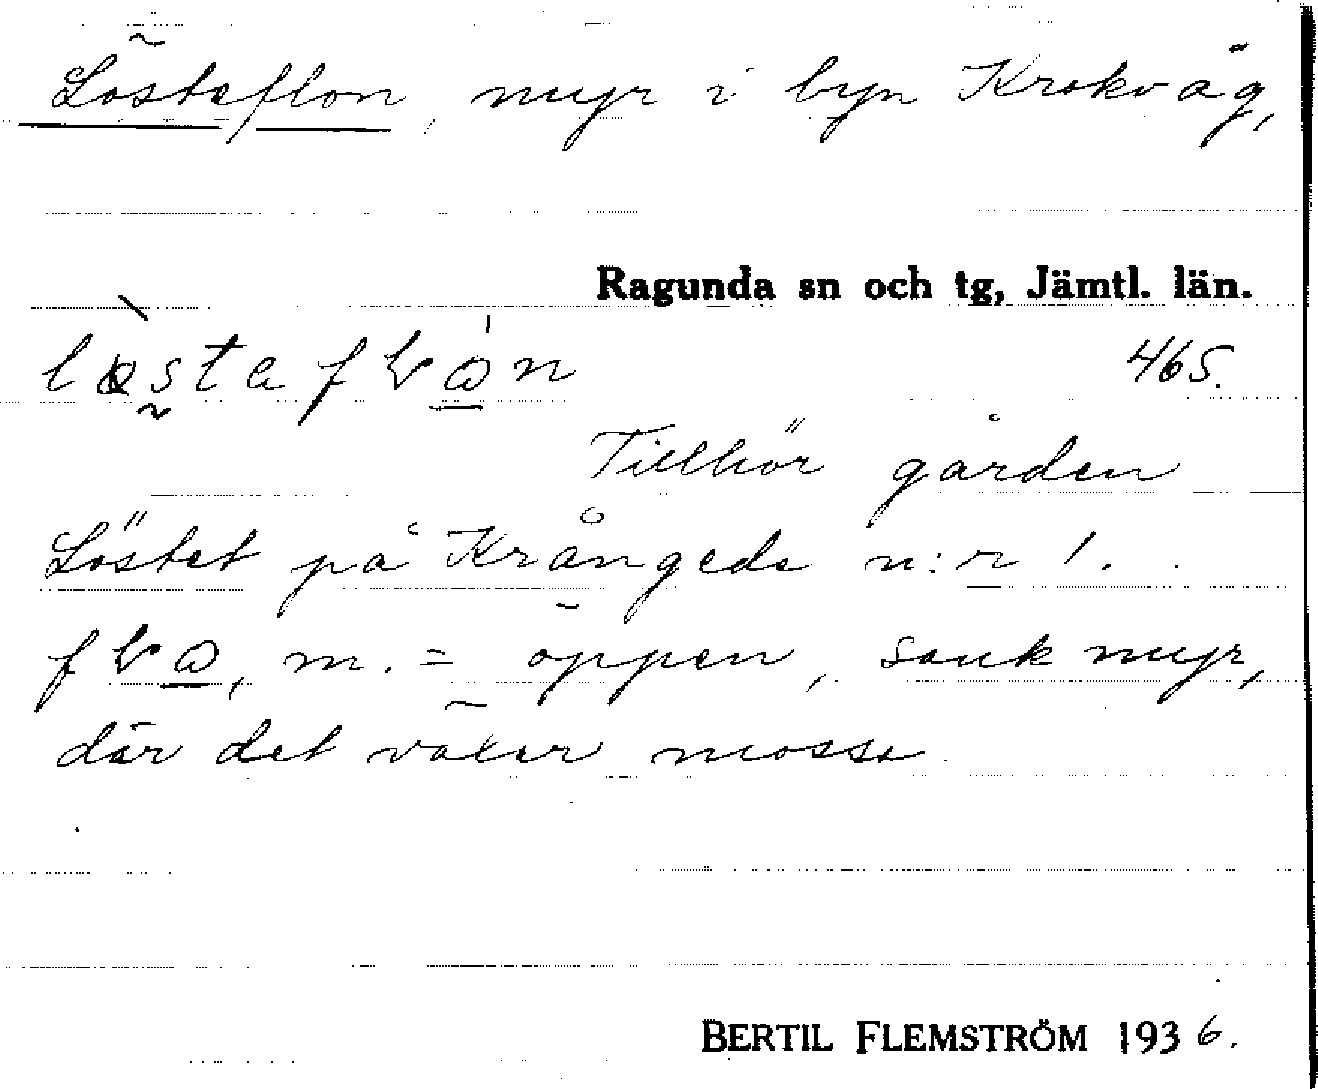 Löstaflon, myr i byn Krokvåg,
Ragunda sn och tg, Jämtl. län.
465.
Tillhör gården
Löstet på Krångede n:r 1.
m. = öppen, sank myr,
där det växer mossa
BERTIL FLEMSTRÖM 1936.